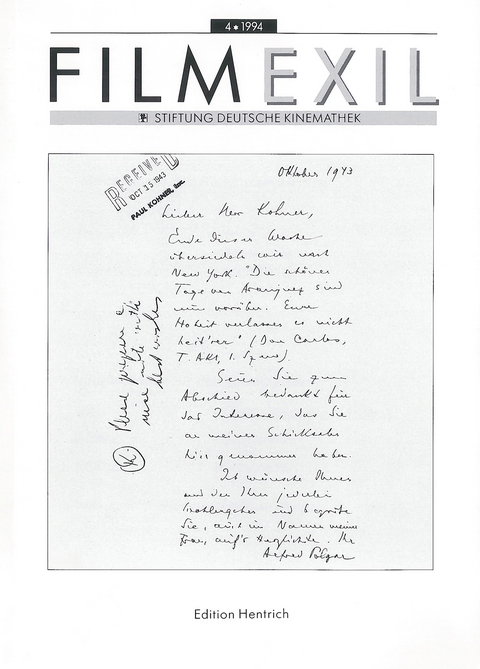 4 • 1994
FILMEXIL
STIFTUNG DEUTSCHE KINEMATHEK
RECEIVED
OCT 15 1943
PAUL KOHNER, Inc.
Oktober 1943
Lieber Herr Kohner,
Ende dieser Woche
übersiedeln wir nach
New York. "Die schönen
Tage von Aranjuez sind
nun vorüber. Eure
Hoheit verlassen es nicht
heit'rer" (Don Carlos,
1. Akt, 1. Szene).
Seien Sie zum
Abschied bedankt für
das Interesse, das Sie
an meinem Schicksale
hier genommen haben.
Ich wünsche Ihnen
und den Ihren
Wohlergehen und
Sie, auch im Namen meiner
Frau, auf's Herzlichste. Ihr
Alfred Polgar
Please prepare a
nice note with
best wishes
K.
Edition Hentrich